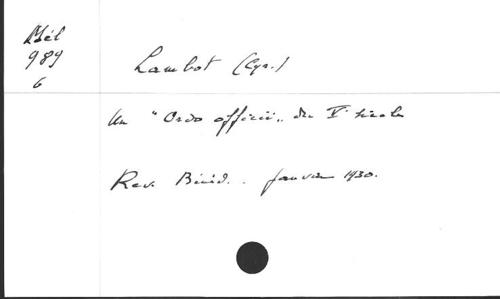 Mél
989
6
Lambot (Cyr.)
Un "Ordo officii" du Ve siècle
Rev. Bénéd. janvier 1930.